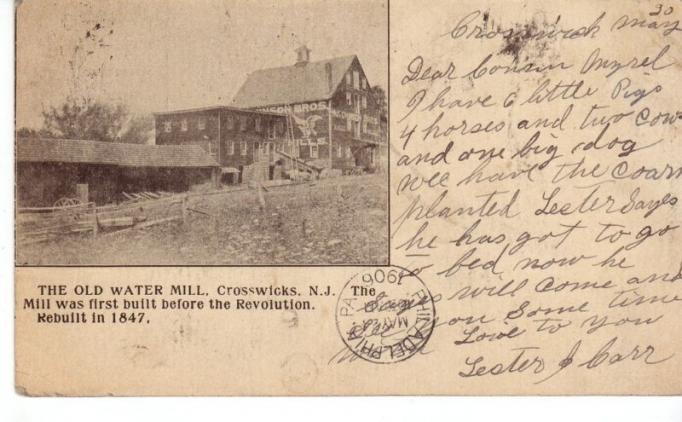 30
Crosswick May
Dear Cousin
I have 6 little Pigs
4 horses and two Cows
and one big dog
wee have the Coarn
planted Lester Sayes
he has got to go
to bed now he
will come and
see you Some time
Love to you
Lester J Carr
NSON BROS.
THE OLD WATER MILL, Crosswicks, N.J. The
Mill was first built before the Revolution.
Rebuilt in 1847.
PHILADELPHIA, PA.
1906
MAY